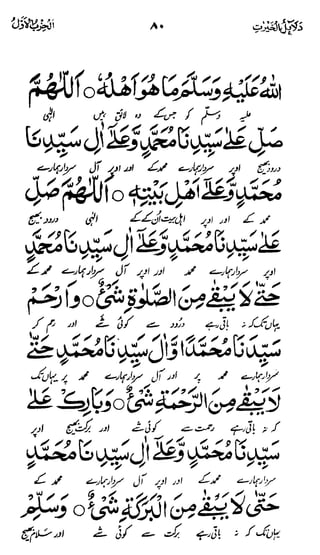 دلائل الخیرات ۸۰ الحزب الاول
اللّٰهُ عَلَيْهِ وَسَلَّمَ مَا هُوَ اَهْلُهُ ○ اَللّٰهُمَّ
علیہ وسلم کو جس کے وہ لائق ہیں الٰہی
صَلِّ عَلٰى سَيِّدِنَا مُحَمَّدٍ وَّعَلٰٓى اٰلِ سَيِّدِنَا
درود بھیج اوپر سردار ہمارے محمد کے اور اوپر آل سردار ہمارے
مُحَمَّدٍ وَّعَلٰٓى اَهْلِ بَيْتِهٖ ○ اَللّٰهُمَّ صَلِّ
محمد کے اور اوپر اہل بیت ان کے کے الٰہی درود بھیج
عَلٰى سَيِّدِنَا مُحَمَّدٍ وَّعَلٰٓى اٰلِ سَيِّدِنَا مُحَمَّدٍ
اوپر سردار ہمارے محمد کے اور اوپر آل سردار ہمارے محمد کے
حَتّٰى لَا يَبْقٰى مِنَ الصَّلٰوةِ شَيْءٌ ○ وَارْحَمْ
یہاں تک کہ نہ باقی رہے درود سے کوئی شے اور رحم کر
سَيِّدَنَا مُحَمَّدًا وَّاٰلَ سَيِّدِنَا مُحَمَّدٍ حَتّٰى
سردار ہمارے محمد پر اور آل سردار ہمارے محمد پر یہاں تک
لَا يَبْقٰى مِنَ الرَّحْمَةِ شَيْءٌ ○ وَبَارِكْ عَلٰى
کہ نہ باقی رہے رحمت سے کوئی شے اور برکت بھیج اوپر
سَيِّدِنَا مُحَمَّدٍ وَّعَلٰٓى اٰلِ سَيِّدِنَا مُحَمَّدٍ
سردار ہمارے محمد کے اور اوپر آل سردار ہمارے محمد کے
حَتّٰى لَا يَبْقٰى مِنَ الْبَرَكَةِ شَيْءٌ ○ وَسَلِّمْ
یہاں تک کہ نہ باقی رہے برکت سے کوئی شے اور سلام بھیج